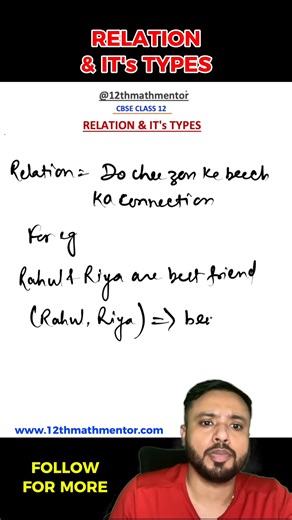 RELATION
& IT's TYPES
@12thmathmentor
CBSE CLASS 12
RELATION & IT's TYPES
Relation = Do cheezon ke beech
ka connection
For eg
Rahul & Riya are best friend
(Rahul, Riya) => bes
www.12thmathmentor.com
FOLLOW
FOR MORE